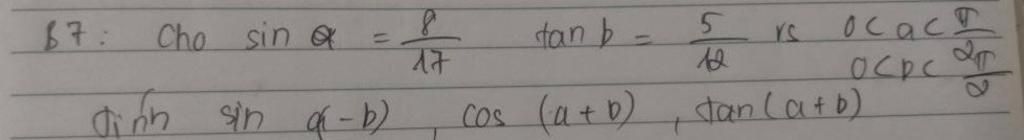 B7: Cho sin a = 8/17 tan b = 5/12 vs 0<a<π/2
0<b<π/2
tính sin a(-b), cos (a+b), tan(a+b)